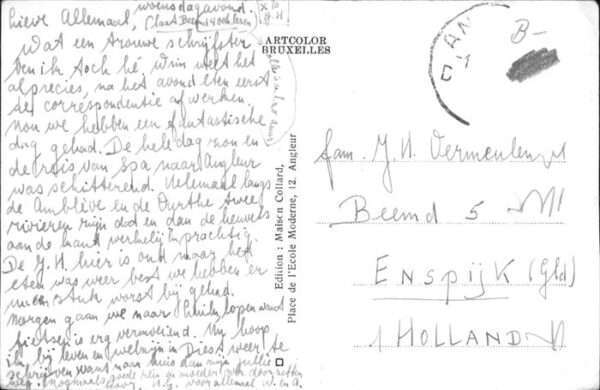 woensdagavond.
Lieve Allemaal, (laat Beemd 4 ook lezen)
Wat een trouwe schrijfster
ben ik toch hé, Wim weet het
al precies, na het avondeten eerst
de correspondentie afwerken.
nou we hebben een fantastische
dag gehad. De hele dag zon en
de reis van Spa naar Angleur
was schitterend. Helemaal langs
de Amblève en de Ourthe twee
rivieren zijn dat en dan de heuvels
aan de kant werkelijk prachtig.
De J.H. hier is oud maar het
eten was weer best we hebben er
een stuk worst bij gehad.
Morgen gaan we naar lopen want
fietsen is erg vermoeiend. Nu hoop
ik bij leven en welzijn in Diest weer te
schrijven want naar huis dan zijn jullie
weg. nogmaals goede reis en moeder
voor allemaal W. en A.
ARTCOLOR
BRUXELLES
Edition : Maison Collard,
Place de l'Ecole Moderne, 12. Angleur
AN
B-
fam. J. H. Vermeulen
Beemd 5
ENSPIJK (Gld)
HOLLAND